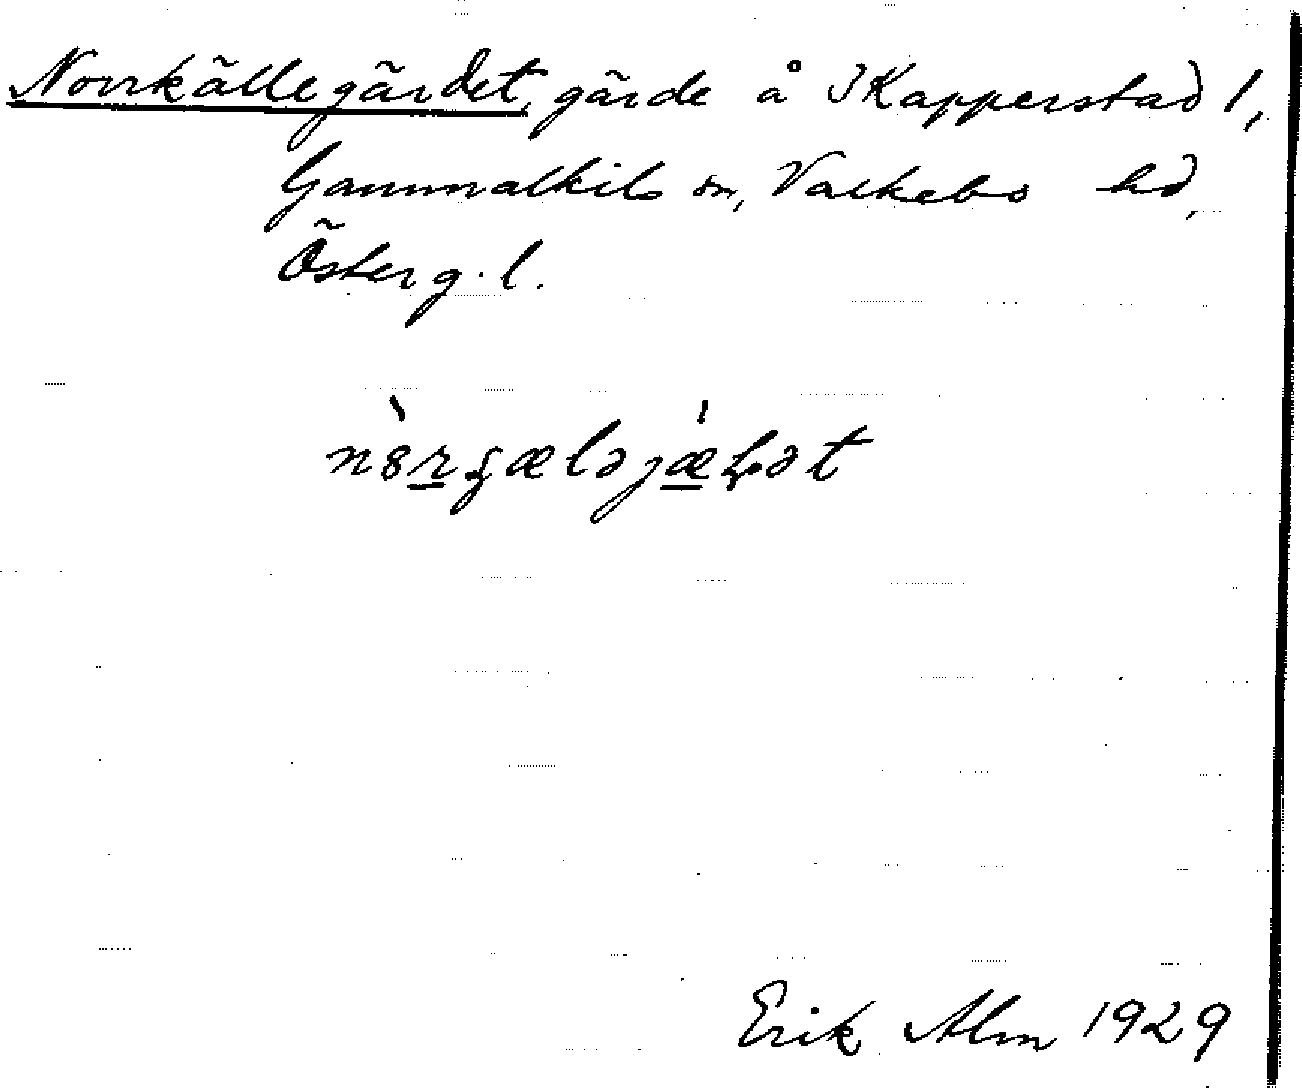 Norrkällegärdet, gärde å Kapperstad 1,
Gammalkils sn, Valkebo hd,
Österg. l.
Erik Alm 1929